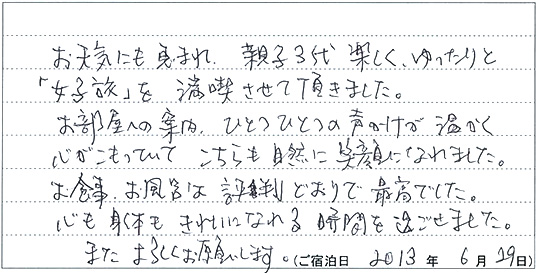 お天気にも恵まれ、親子3代 楽しく、ゆったりと
「女子旅」を 満喫させて頂きました。
お部屋への案内、ひとつひとつの声かけが 温かく
心がこもっていて こちらも自然に 笑顔になれました。
お食事、お風呂は 評判どおりで 最高でした。
心も身体も きれいになれる 時間を過ごせました。
また よろしくお願いします。(ご宿泊日 2013 年 6 月 29日)